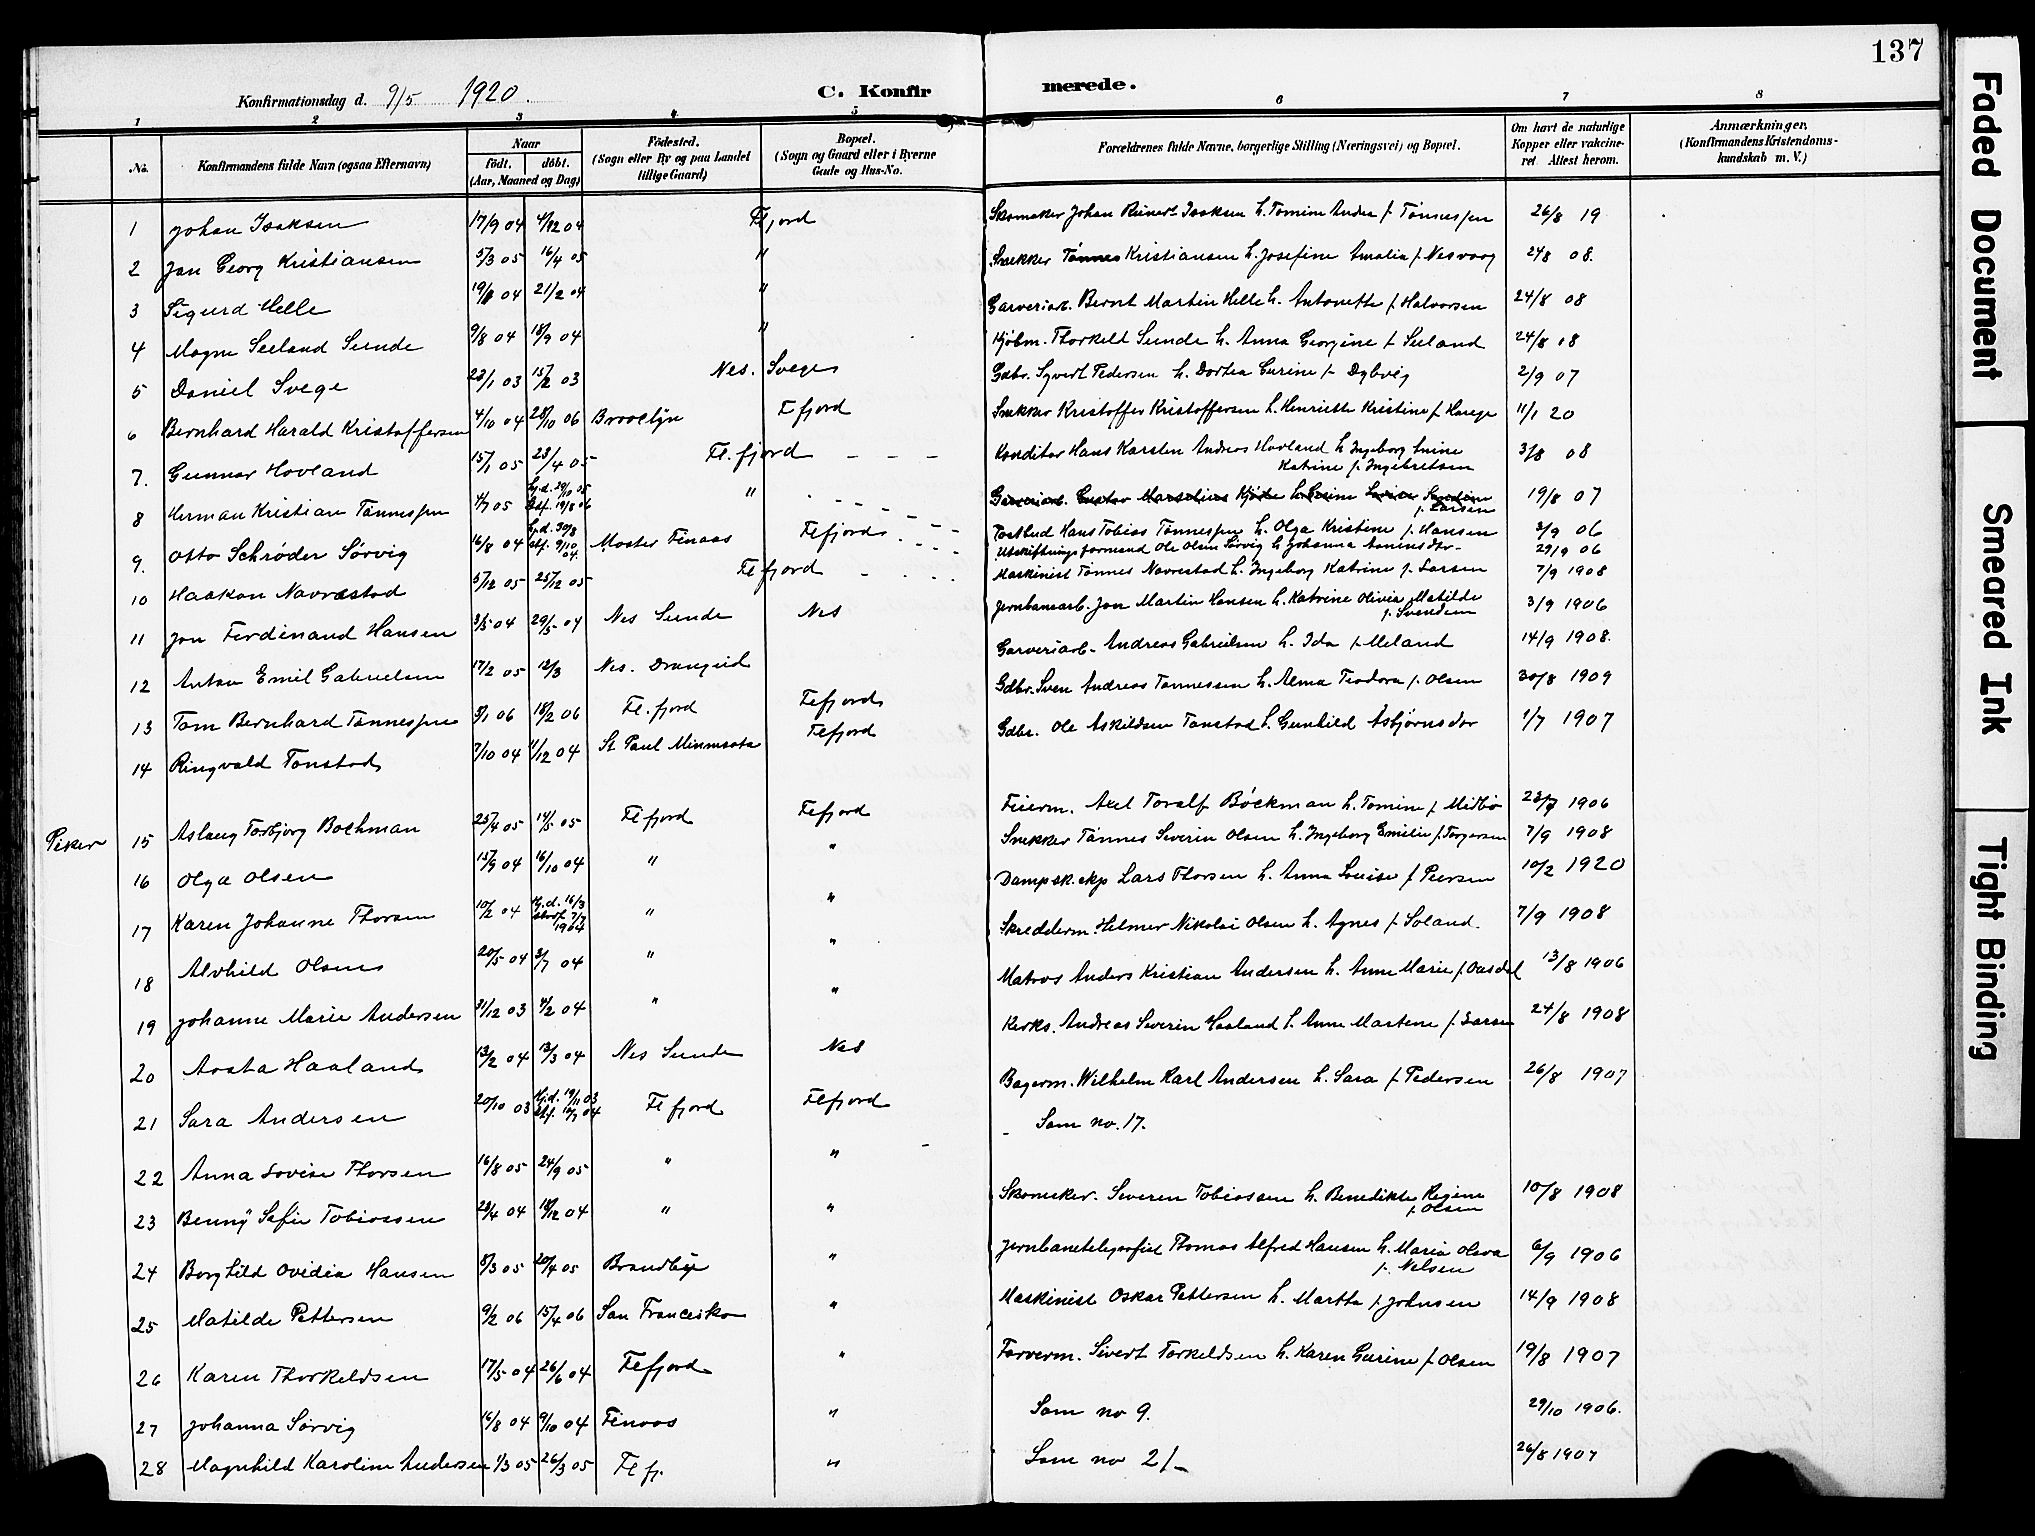 137
Konfirmationsdag d. 9/5 1920. C. Konfirmerede.
1 2 3 4 5 6 7 8
No. Konfirmandens fulde Navn (ogsaa Efternavn) Naar født. døbt. (Aar, Maaned og Dag) Födested. (Sogn eller By og paa Landet tillige Gaard) Bopæl. (Sogn og Gaard eller i Byerne Gade og Hus-No. Forældrenes fulde Navne, borgerlige Stilling (Næringsvei) og Bopæl. Om havt de naturlige Kopper eller vakcineret. Attest herom. Anmærkninger. (Konfirmandens Kristendomskundskab m. V.)
1 Johan Isaksen 17/9 04 4/12 04 Flfjord Skomaker Johan Isaksen h. Tomine Andrea f. Tønnessen 26/8 19
2 Jan Georg Kristiansen 5/3 05 16/4 05 " Snekker Tønnes Kristiansen h. Josefine Amalia f. Nesvaag 24/8 08.
3 Sigurd Helle 04 21/2 04 " Garveriarb. Bernt Martin Helle h. Antonette f. Halvorsen 24/8 08
4 Magne Seland Sunde 9/8 04 18/9 04 " Kjøbm. Thorkeld Sunde h. Anna Georgine f. Seland 24/8 08
5 Daniel Svege 23/1 03 15/2 03 Nes. Svege Gdbr. Syvert Pedersen h. Dortea Gurine f. Dybvig 2/9 07
6 Bernhard Harald Kristoffersen 4/10 04 28/10 06 Brooclyn Flfjord Snekker Kristoffer Kristoffersen h. Henriette Kristine f. Hauge 11/1 20
7. Gunnar Hovland 15/1 05 23/4 05 Fl.fjord Konditor Hans Karsten Andreas Hovland h. Ingeborg Katrine f. Ingebretsen 3/8 08
8 Herman Kristian Tønnessen 4/7 05 hj.d. 29/10 05 Stf. 19/8 06 " Garveriarb. Gustav f. Larsen 19/8 07
9. Otto Schrøder Sørvig 16/8 04 hj.d. 30/8 stf. 9/10 04. Moster Finaas Flfjord Postbud Hans Tobias Tønnessen h. Olga Kristine f. Hansen 3/9 06
Utskiftningsformand Ole Olsen Sørvig h. Johanna 29/9 06
10 Haakon Navrestad 5/12 05 25/12 05 Flfjord Maskinist Tønnes Navrestad h. Ingeborg Katrine f. Larsen 7/9 1908
11 Jon Ferdinand Hansen 3/5 04 29/5 04 Nes Sunde Nes Jernbanearb. Jon Martin Hansen h. Katrine Olivia Matilde f. Svendsen 3/9 1906
12 Anton Emil Gabrielsen 17/2 05 12/3 Nes. Drangeid Garveriarb. Andreas Gabrielsen h. Ida f. Meland 14/9 1908.
13 Tom Bernhard Tønnessen 3/1 06 18/2 06 Fl.fjord Flfjord Gdbr. Sven Andreas Tønnessen h. Alma Teodora f. Olsen 30/8 1909
14 Ringvald Tonstad 7/10 04 4/12 04 St Paul Minnesota Flefjord Gdbr. Ole Askildsen Tonstad h. Gunhild Asbjørnsdtr 1/7 1907
Piker
15 Aslaug Torbjørg Bochman 25/4 05 14/5 05 Flfjord Flfjord Feierm. Axel Toralf Bøckman h. Tomine f. Midbø 1906
16 Olga Olsen 15/9 04 16/10 04 " " Snekker Tønnes Severin Olsen h. Ingeborg Emilie f. Torgersen 7/9 1908
17 Karen Johanne Thorsen 10/2 04 hj.d. 16/3 stadf. 7/7 1904 " " Dampsk.eksp Lars Thorsen h. Anna Lovise f. Peersen 10/2 1920
18 Alvhild Olsen 20/5 04 3/7 04 " " Skredderm. Helmer Nikolai Olsen h. Agnes f. Soland. 7/9 1908
19 Johanne Marie Andersen 31/12 03 4/2 04 " " Matros Anders Kristian Andersen h. Anne Marie f. Oasdal 13/8 1906
20 Aasta Haaland 13/2 04 13/3 04 Nes Sunde Nes Kirks. Andreas Severin Haaland h. Anne Martene f. Larsen 24/8 1908
21 Sara Andersen 20/10 03 hj.d. 19/11 03 stf. 04 Flfjord Flefjord Bagerm. Wilhelm Karl Andersen h. Sara f. Pedersen 26/8 1907
22 Anna Lovise Thorsen 16/8 05 24/9 05 " " Som no. 17.
23 Benny Sofie Tobiassen 23/4 04 18/12 04 " " Skomaker. Severen Tobiassen h. Benedikte Regine f. Olsen 10/8 1908
24 Borghild Ovidia Hansen 8/3 05 20/4 05 Brandbye " Jernbanetelegrafist Thomas Alfred Hansen h. Maria Olava f. Nelsen 6/9 1906
25 Matilde Pettersen 9/2 06 15/4 06 San Francisko " Maskinist Oskar Pettersen h. Martha f. Johnsen 14/9 1908
26 Karen Thorkeldsen 17/5 04 26/6 04 Flefjord " Farverm. Sivert Torkeldsen h. Karen Gurine f. Olsen 19/8 1907
27 Johanna Sørvig 16/8 04 9/10 04 Finaas " Som no 9. 29/10 1906.
28 Magnhild Karoline Andersen 1/3 05 26/3 05 Flfj. " Som no 21 26/8 1907
Faded Document
Smeared Ink
Tight Binding